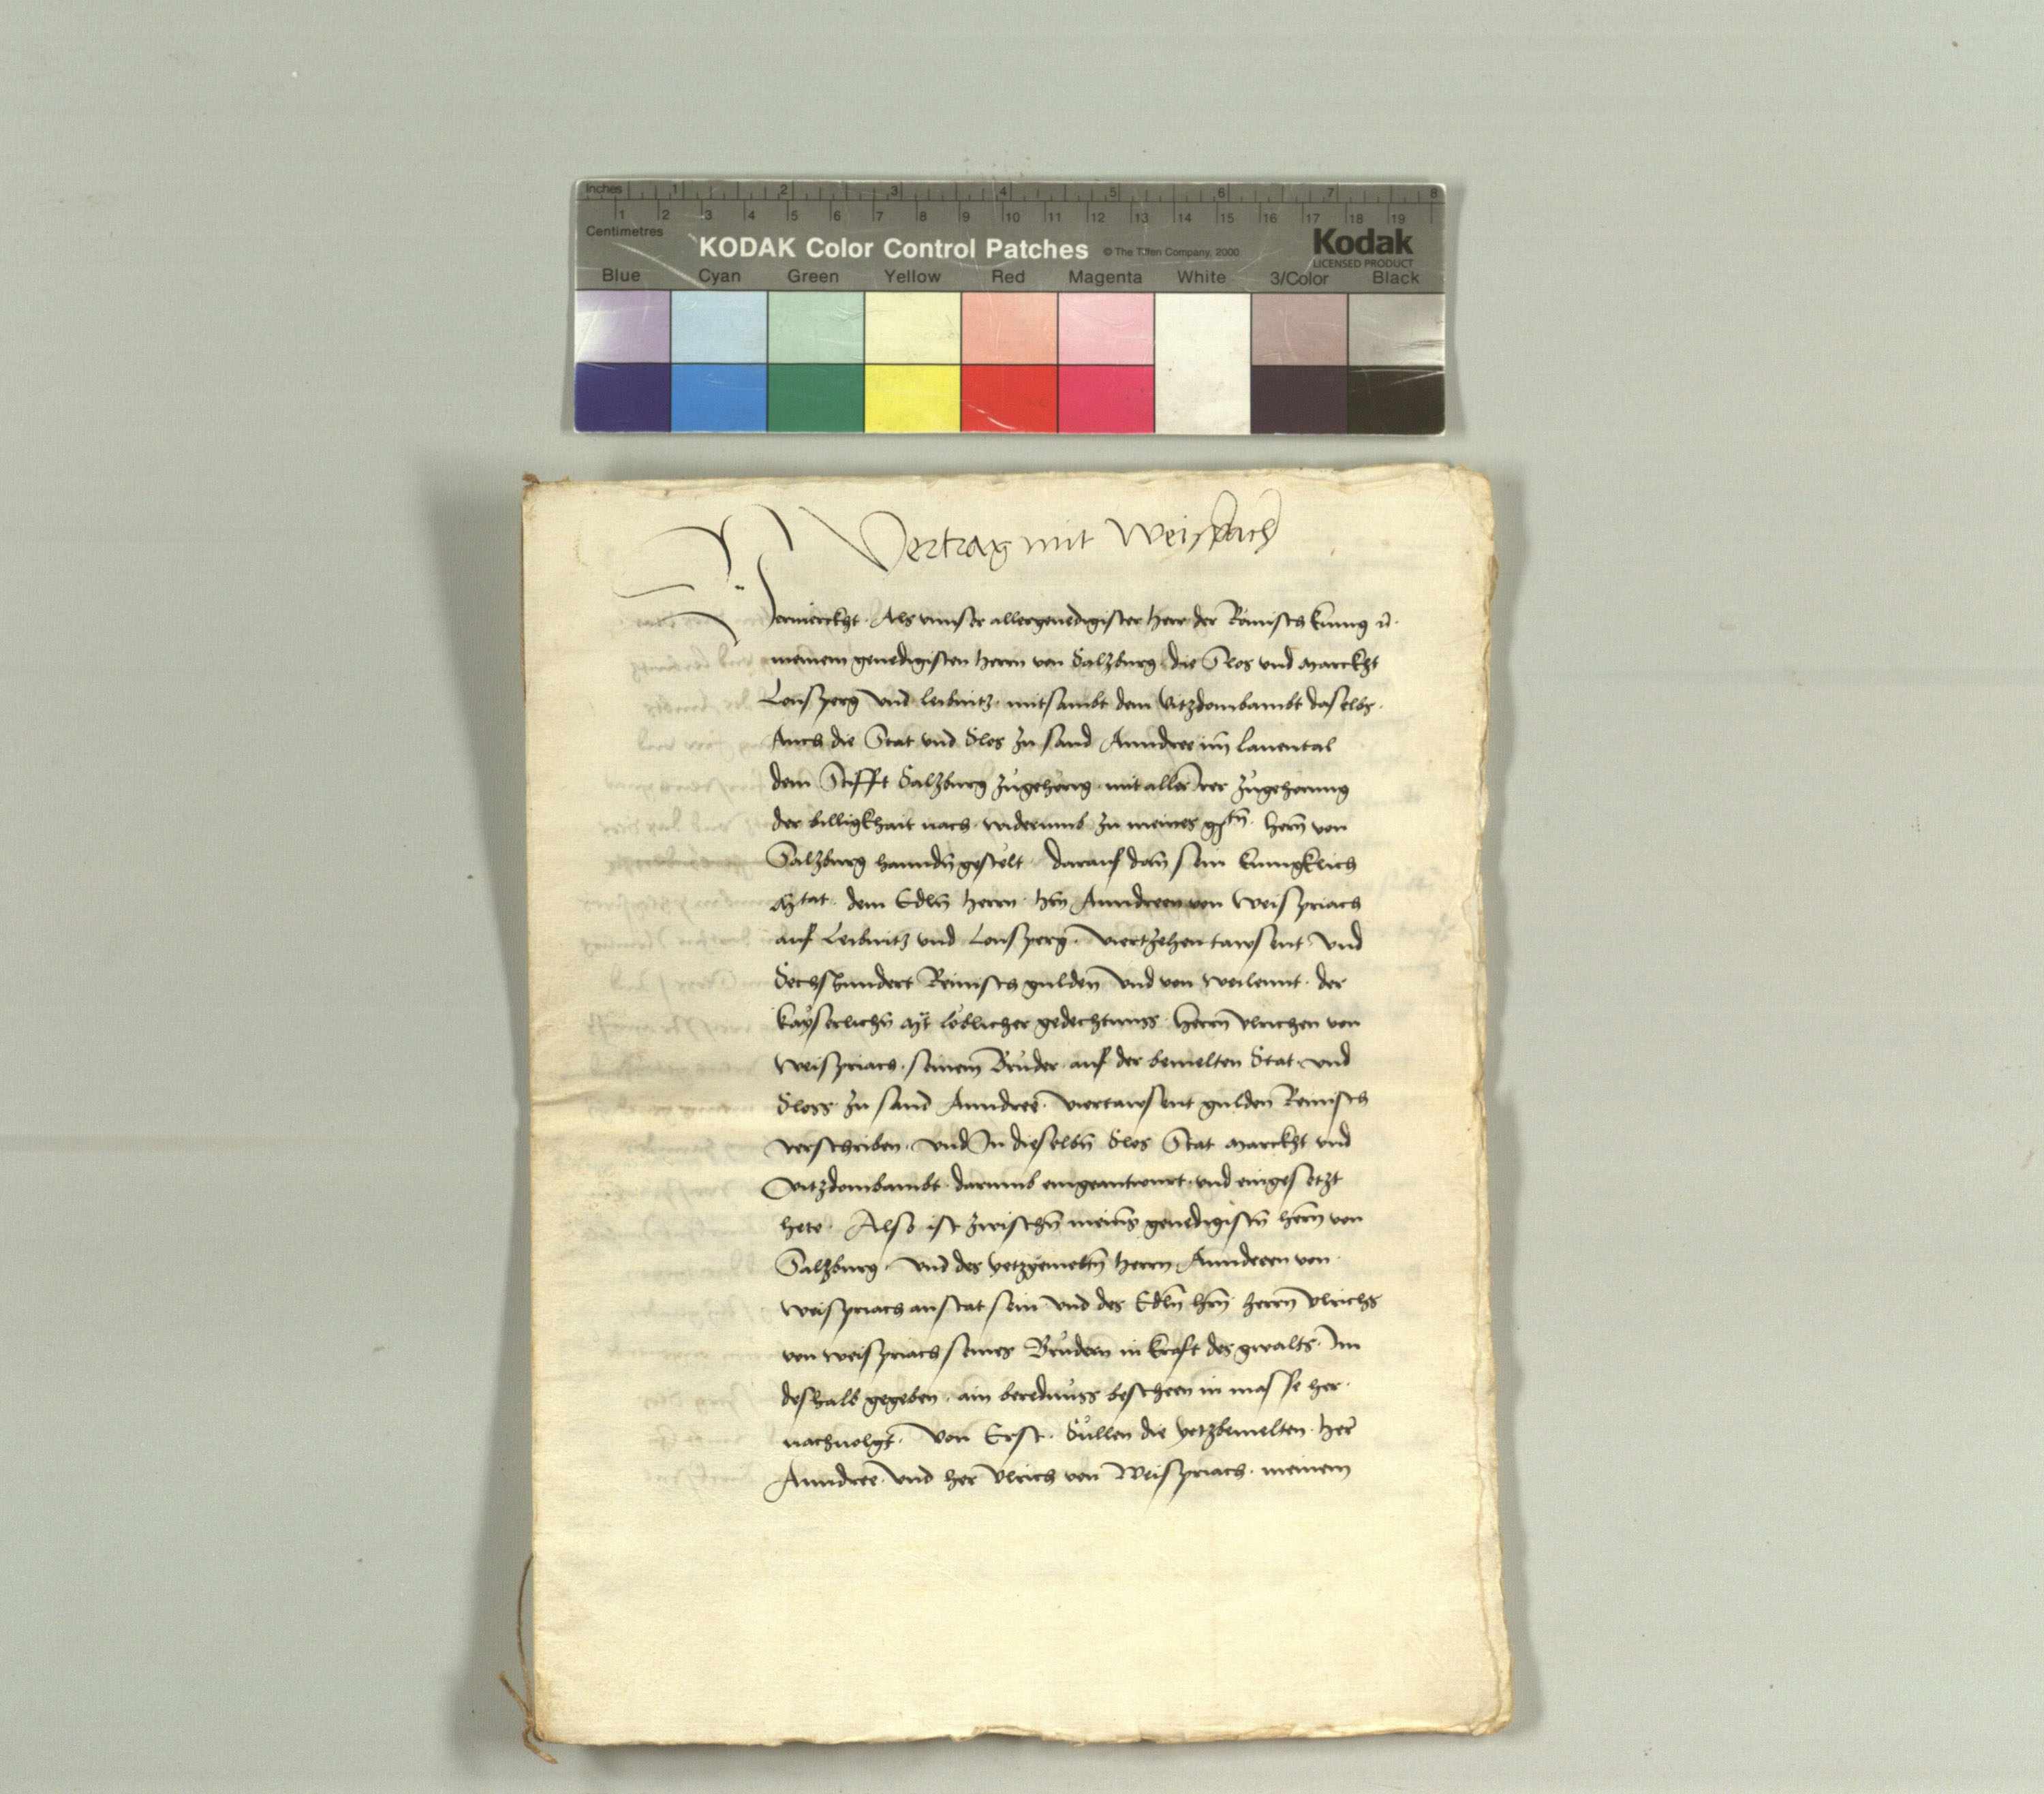 Inches 1 2 3 4 5 6 7 8
1 2 3 4 5 6 7 8 9 10 11 12 13 14 15 16 17 18 19
Centimetres
KODAK Color Control Patches © The Tiffen Company, 2000 Kodak
LICENSED PRODUCT
Blue Cyan Green Yellow Red Magenta White 3/Color Black
Vertrag mit Weispach
Vermerckht. Als vnnser allergenedigister herr der Römisch kunig
meinem genedigisten herrn von Salzburg die Slos vnd Marckht
Lonsperg vnd Leibnitz. mitsambt dem Vitzdombambt daselbs.
Auch die Stat vnd Slos zu sand Anndree im lauental
dem Stifft Salzburg zugehörig mit aller irer zugehorung
der billigkhait nach widerumb zu meines gstn̄. hern̄ von
Salzburg hanndn̄ gestelt darauf dan̄ sein kunigklich
Mtat. dem Edln̄ herrn. hrn̄ Anndreen von Weispriach
auf Leibnitz vnd Lonsperg. viertzehentawsent vnd
Sechshundert Reinisch gulden̄ vnd von weilennt. der
kayserlichn̄ Mt löblicher gedechtnuss herrn̄ vlrichen von
Weispriach. seinem Bruder auf der bemelten Stat vnd
Sloss zu sand Anndree. viertawsent gulden̄ Reinisch
verschriben. vnd In dieselbn̄ Slos Stat Marckht vnd
Vitzdombambt darumb eingeantwurt vnd eingesetzt
hete. Also ist zwischn̄ meins genedigistn̄ hern̄ von
Salzburg. vnd des yetzgemeltn̄ herrn Anndreen von
Weispriach anstat sein vnd des Edln̄ hrn̄ herrn̄ Vlrichs
von Weispriach seines Brudern in kraft des gwalts. Im
deshalb gegeben. ain berednuss bescheen in masse her
nachuolgt. Von Erst. Sullen die yetzbemelten her
Anndree. vnd her Vlrich von Weispriach. meinem